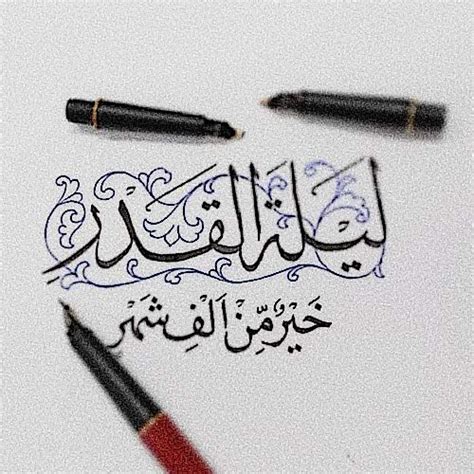 ليلة القدر
خَيْرٌ مِّنْ اَلْفِ شَهْرٍ